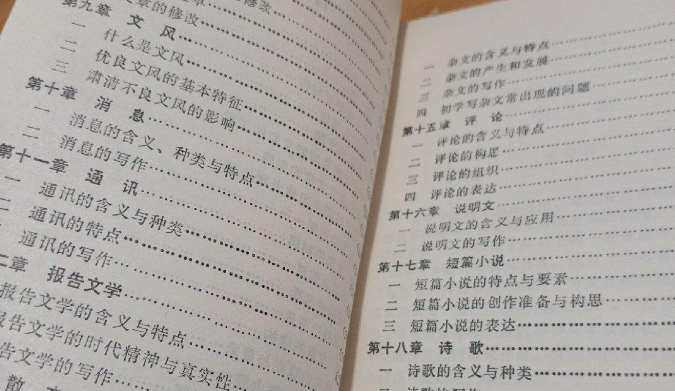 章的修改
第九章 文风
一 什么是文风
二 优良文风的基本特征
三 肃清不良文风的影响
第十章 消息
一 消息的含义、种类与特点
二 消息的写作
第十一章 通讯
一 通讯的含义与种类
二 通讯的特点
通讯的写作
二章 报告文学
报告文学的含义与特点
报告文学的时代精神与真实性
告文学的写作
散
一 杂文的含义与特点
二 杂文的产生和发展
三 杂文的写作
四 初学写杂文常出现的问题
第十五章 评论
一 评论的含义与特点
二 评论的构思
三 评论的组织
四 评论的表达
第十六章 说明文
一 说明文的含义与应用
二 说明文的写作
第十七章 短篇小说
一 短篇小说的特点与要素
二 短篇小说的创作准备与构思
三 短篇小说的表达
第十八章 诗歌
一 诗歌的含义与种类